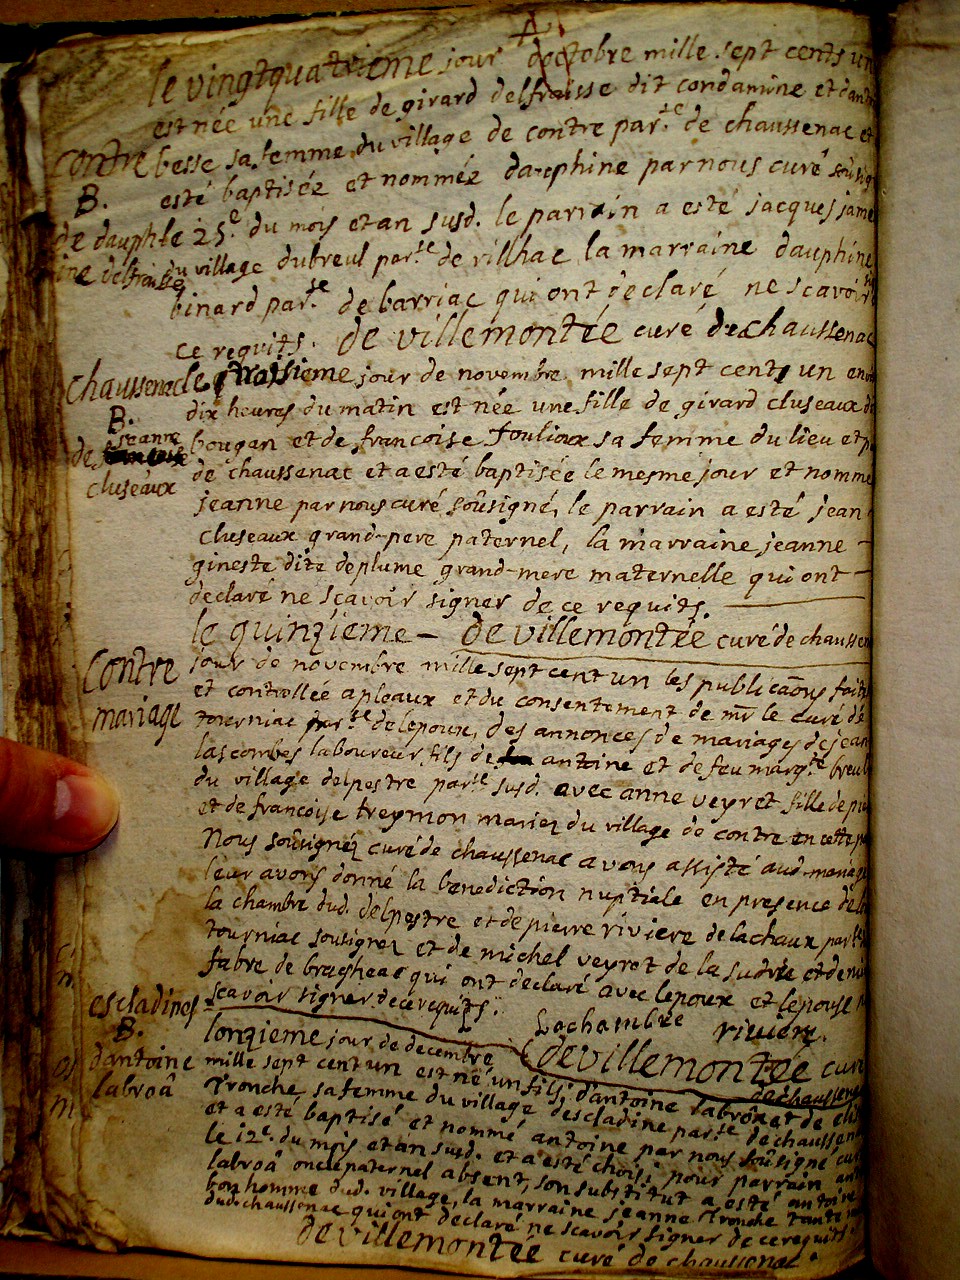 A
le vingtquatrieme jour doctobre mille sept cents un
est née une fille de girard delfraisse dit condamine et dant
contre besse sa femme du village de contre par.se de chaussenac et
B. esté baptisée et nommée dauphine par nous curé soûsig
de dauph le 25.e du mois et an susd. le parrain a esté jacques jame
ine delfraisse du village dubreul par.se de vilhac la marraine dauphine
binard par.se de barriac qui ont declaré ne scavoir
ce requits. de villemontée curé de chaussenac
chaussenac le troisieme jour de novembre mille sept cents un env
B. dix heures du matin est née une fille de girard cluseaux d
de jeanne bougan et de francoise foulioux sa femme du lieu et p
cluseaux de chaussenac et a esté baptisée le mesme jour et nomme
jeanne par nous curé soûsigné, le parrain a esté jean
cluseaux grand-pere paternel, la marraine jeanne
gineste dite deplume grand-mere maternelle qui ont
declaré ne scavoir signer de ce requits.
le quinzieme – de villemontée curé de chaussen
contre jour de novembre mille sept cent un les publicãons faite
mariage et controllée apleaux et du consentement de mr le curé de
tourniac par.se de lepoux, des annonces de mariages de jean
lascombes laboureur fils de antoine et de feu marg.te breul
du village delpestre par.se susd. avec anne veyret fille de pie
et de francoise treymon mariez du village de contre en cette p
Nous soûsignez curé de chaussenac avons assisté aud. mariage
leur avons donné la benediction nuptiale en presence de
la chambre dud. delpestre et de pierre riviere de lachaux par.se
tourniac sousignez et de michel veyret de la sudrie et de
fabre de bragheac qui ont declaré avec lepoux et lepouse n
scavoir signer de ce requits.
Lachambre riviere.
escladines lonzieme jour de decembre de villemontée curé
B. mille sept cent un est né un fils, d'antoine labroâ et de de chaussenac
dantoine Tronche, sa femme du village descladine par.se de chaussen
labroâ et a esté baptisé et nommé antoine par nous soûsigné cur
le 12e. du mois et an susd. et a esté choisi pour parrain an
labroâ oncle paternel absent, son substitut a esté antoine
bonhomme dud. village, la marraine jeanne Tronche tante
dud. chaussenac qui ont declaré ne scavoir signer de ce requits
de villemontée curé de chaussenac.